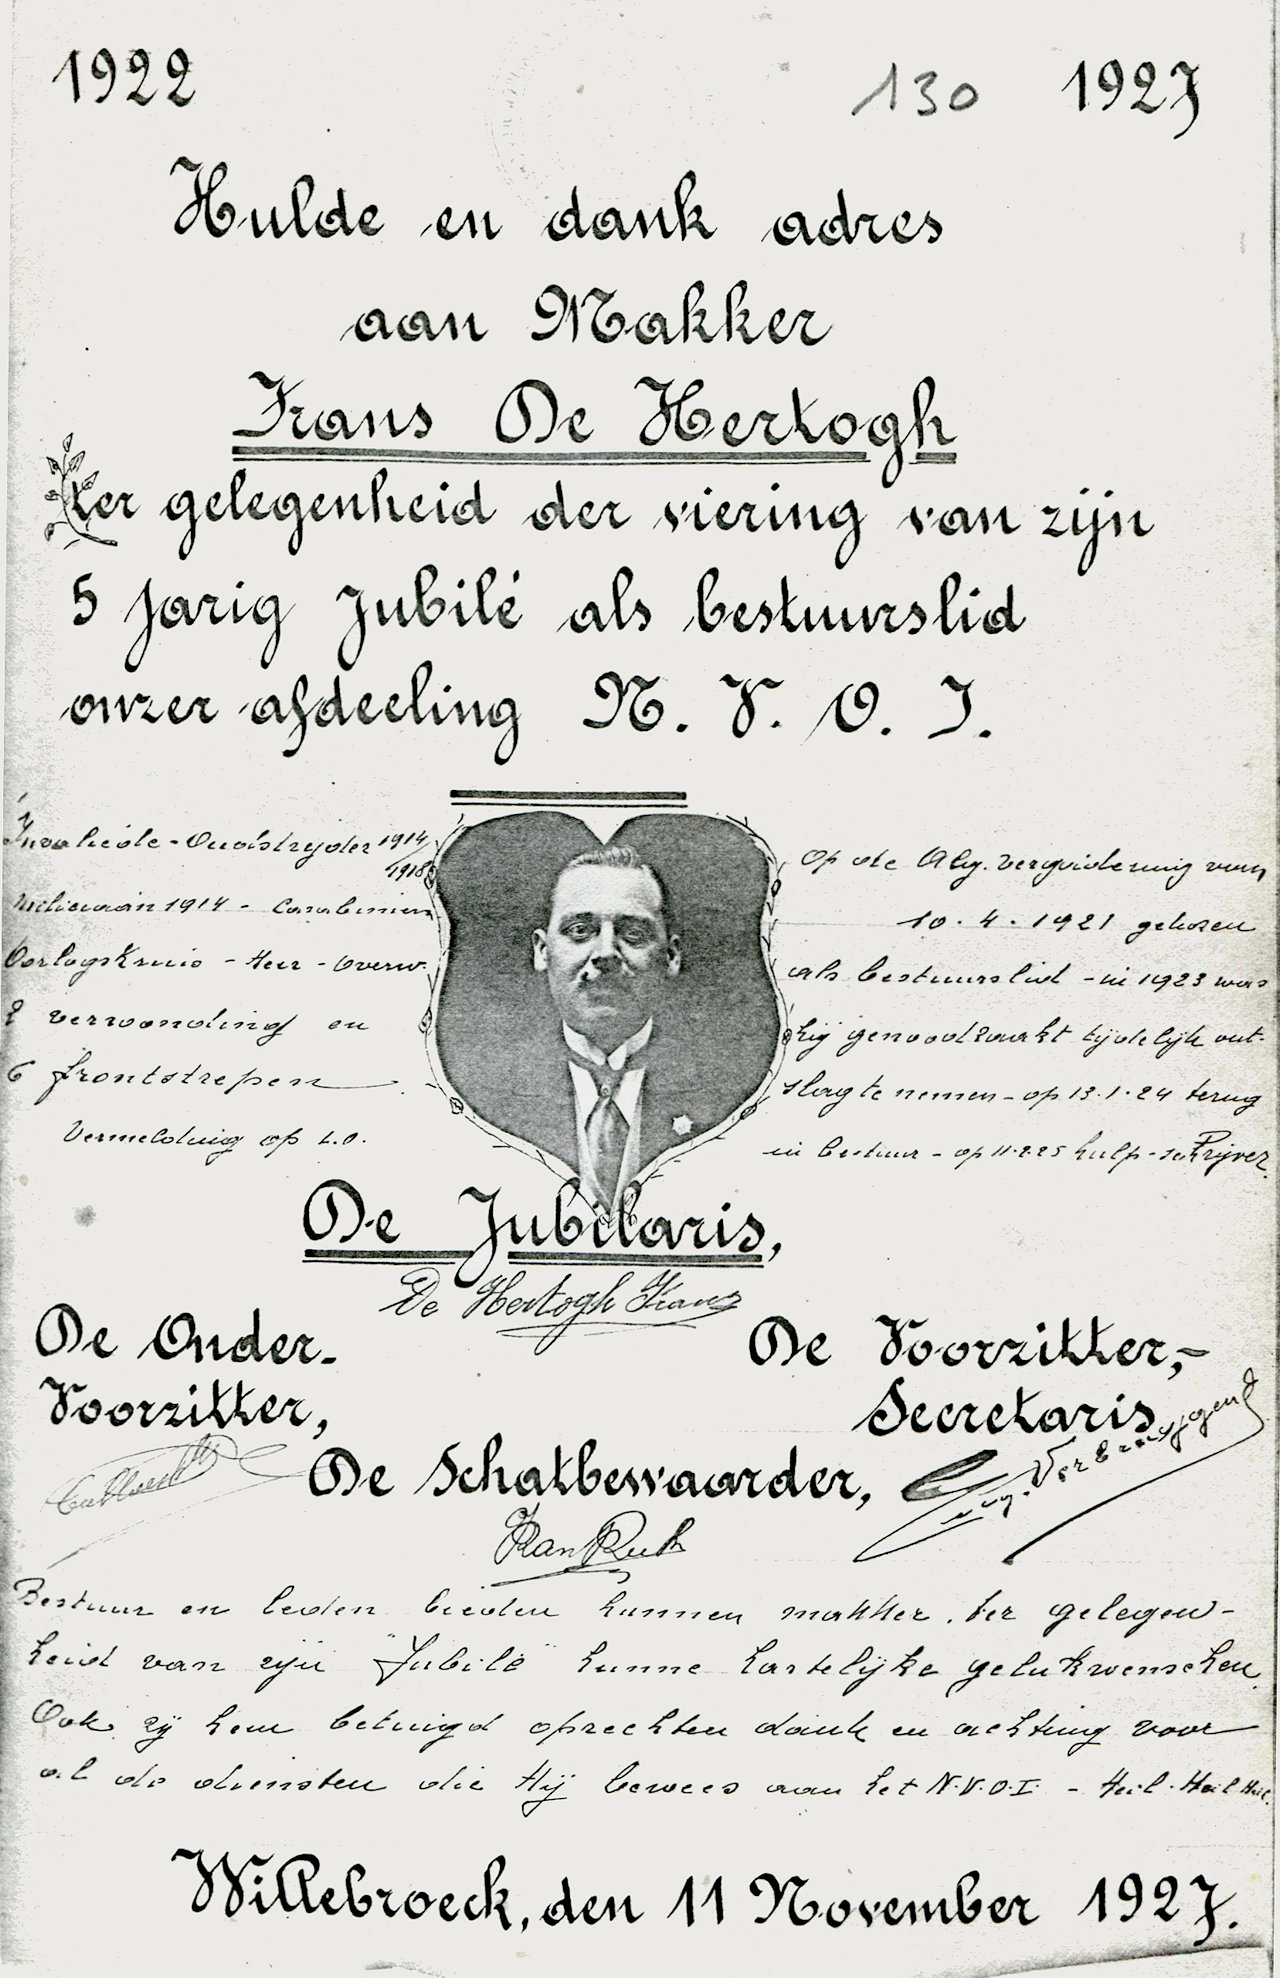 1922 130 1927
Hulde en dank adres
aan Makker
Frans De Hertogh
ter gelegenheid der viering van zijn
5 jarig jubilé als bestuurslid
onzer afdeeling N. V. O. I.
Invaliede - Oudstryder 1914/1918
milicaan 1914 - Carabinier
Oorlogskruis - Heer - Overw.
2 verwonding en
6 frontstrepen
Vermelding op L.O.
Op de Alg. vergadering van
10. 4. 1921 gekozen
als bestuurslid - in 1923 was
hij genoodzaakt tijdelijk ont-
slag te nemen - op 13.1.24 terug
in bestuur - op 11.2.25 hulp-schrijver
De Jubilaris,
De Hertogh Frans
De Onder-
Voorzitter,
De Voorzitter,-
Secretaris
De Schatbewaarder,
Bestuur en leden bieden hunnen makker, ter gelegen-
heid van zijn "Jubilé" hunne hartelijke gelukwenschen.
Ook zij hem betuigd oprechten dank en achting voor
al de diensten die Hij bewees aan het N.V.O.I. - Heil. Heil Heil.
Willebroeck, den 11 November 1927.